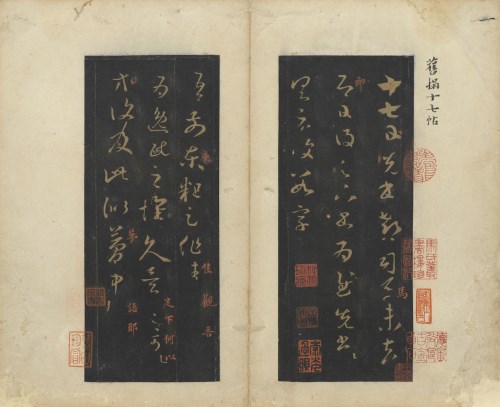 舊搨十七帖
十七日先書郗司馬未去
即日得足下書為慰先書以
具示復數字
吾前東粗足作佳觀吾
為逸民之懷久矣足下何以
方復及此似夢中語耶